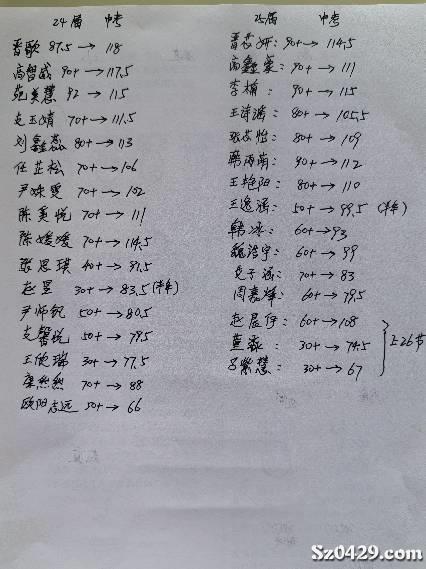 24届 中考
晋歌 87.5→118
高智威 90+→117.5
苑美慧 92→115
支玉婧 70+→111.5
刘鑫蕊 80+→113
任芷松 70+→106
尹姝雯 70+→102
陈美悦 70+→111
陈媛媛 70+→114.5
张思琪 40+→91.5
赵昱 30+→83.5
尹师钒 50+→80.5
支馨悦 50+→79.5
王俊瑞 30+→77.5
栾然然 70+→88
欧阳志远 50+→66
25届 中考
晋芯妍: 90+→114.5
高鑫 90+→111
李楠: 90+→115
王涛 80+→105.5
张芯怡: 80+→109
韩雨萌: 90+→112
王艳阳: 80+→110
王逸涵: 50+→99.5
韩冰: 60+→93
魏浩宇: 60+→99
支子涵: 70+→83
周嘉烨: 60+→79.5
赵晨伊: 60+→108
30+→74.5
吕紫慧: 30+→67
上26节
Sz0429.com